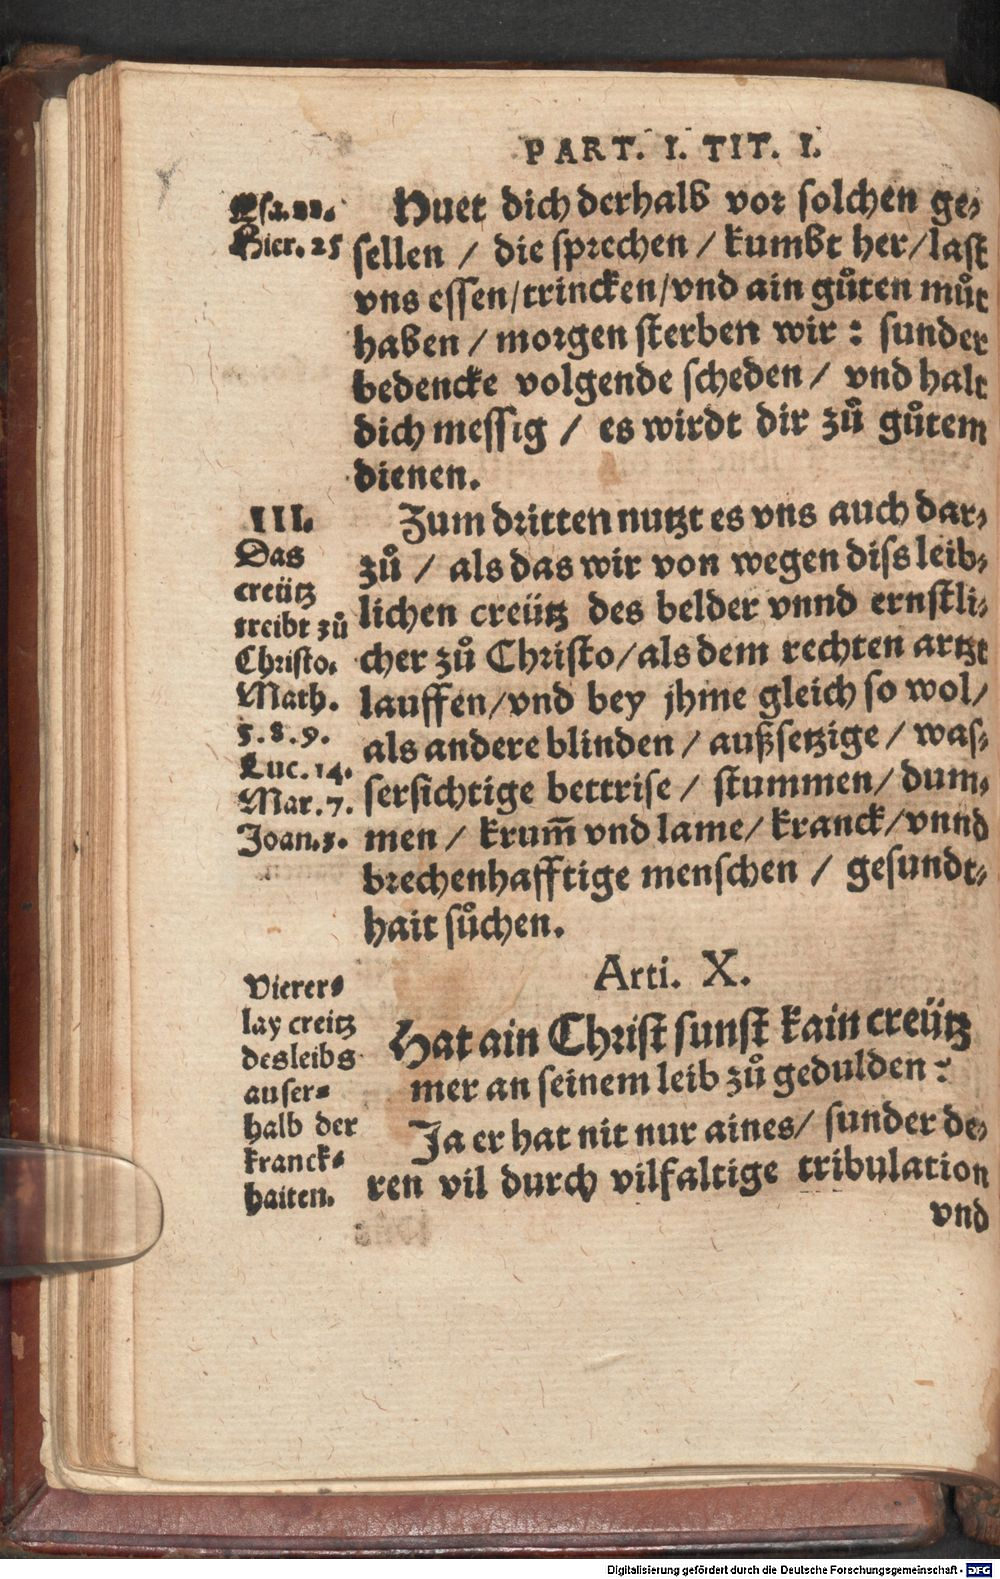 PART. I. TIT. I.
Esa. 22.
Hier. 25
Huet dich derhalb vor solchen ge⸗
sellen / die sprechen / kumbt her / last
vns essen / trincken / vnd ain gůten můt
haben / morgen sterben wir : sunder
bedencke volgende scheden / vnd halt
dich messig / es wirdt dir zů gůtem
dienen.
III.
Das
creütz
treibt zů
Christo.
Math.
5. 8. 9.
Luc. 14.
Mar. 7.
Joan. 5.
Zum dritten nutzt es vns auch dar⸗
zů / als das wir von wegen diss leib⸗
lichen creütz des belder vnnd ernstli⸗
cher zů Christo / als dem rechten artzt
lauffen / vnd bey jhme gleich so wol /
als andere blinden / außsetzige / was⸗
sersichtige bettrise / stummen / dum⸗
men / krum̄ vnd lame / kranck / vnnd
brechenhafftige menschen / gesundt⸗
hait sůchen.
Arti. X.
Vierer⸗
lay creitz
des leibs
auser⸗
halb der
kranck⸗
haiten.
Hat ain Christ sunst kain creütz
mer an seinem leib zů gedulden?
Ja er hat nit nur aines / sunder de⸗
ren vil durch vilfaltige tribulation
vnd
Digitalisierung gefördert durch die Deutsche Forschungsgemeinschaft - DFG